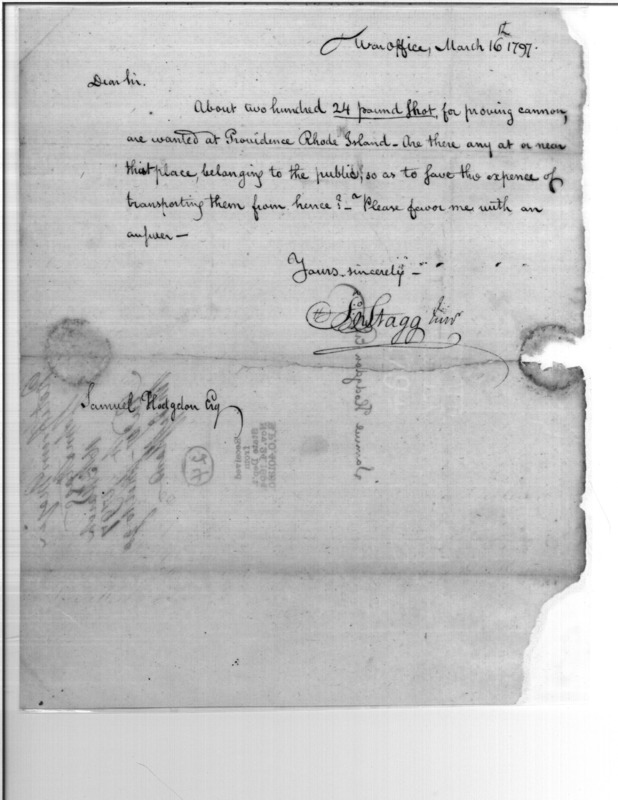 War office, March 16th 1797.
Dear Sir.
About two hundred 24 pound Shot, for proving cannon,
are wanted at Providence Rhode Island - Are there any at or near
that place, belonging to the public, so as to save the expence of
transporting them from hence? - Please favor me with an
answer -
Yours sincerely -
Jn Stagg Junr
Samuel Hodgdon Esq
24